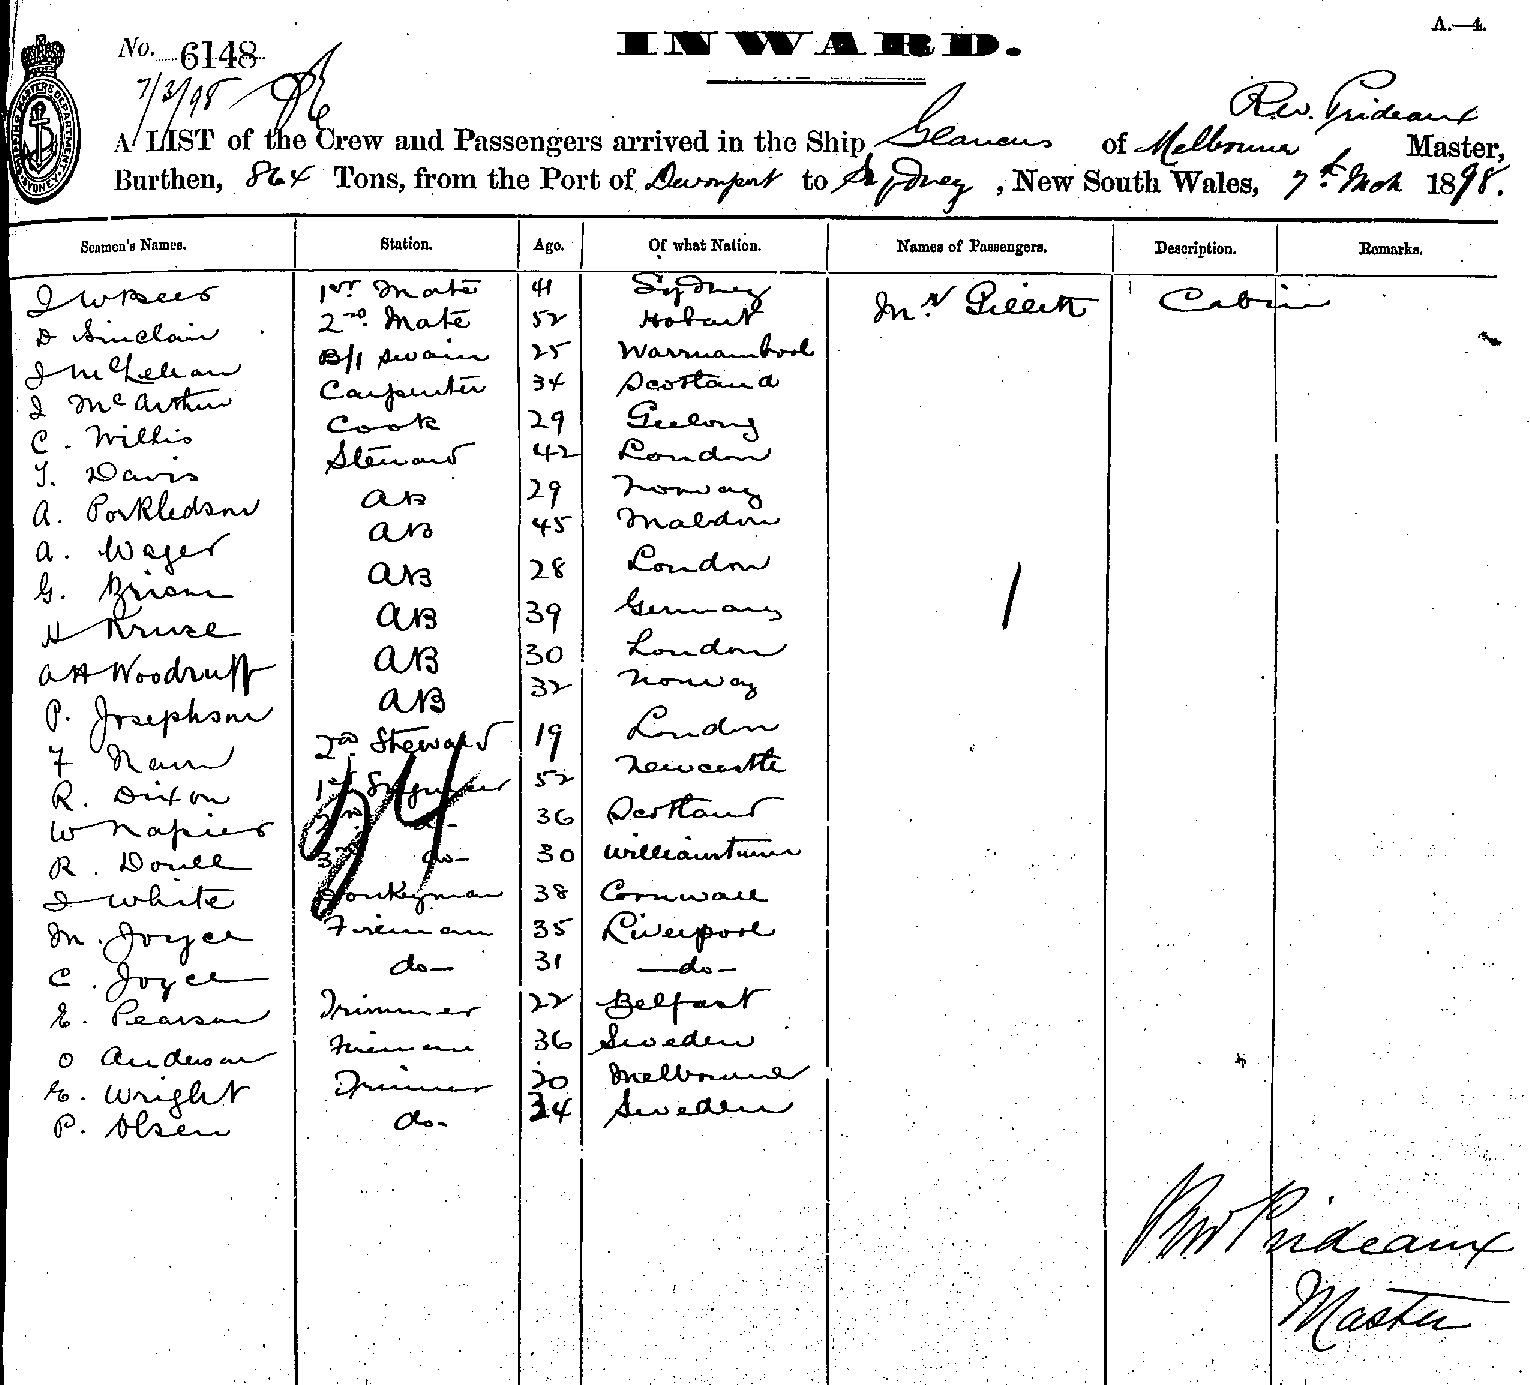 A.—4.
INWARD.
No. 6148
7/3/98
Rw. Prideaux
A LIST of the Crew and Passengers arrived in the Ship Glaucus of Melbourne Master,
Burthen, 864 Tons, from the Port of Devonport to Sydney, New South Wales, 7th Mch 1898.
Seamen's Names. Station. Age. Of what Nation. Names of Passengers. Description. Remarks.
J W Rees 1st Mate 41 Sydney Mr Gillett Cabin
D Sinclair 2nd Mate 52 Hobart
J McLellan B/swain 25 Warrnambool
J McArthur Carpenter 34 Scotland
C. Willis Cook 29 Geelong
T. Davis Steward 42 London
A. Porkledson AB 29 Norway
A. Wager AB 45 Maldon
G. Brien AB 28 London
H Kruse AB 39 Germany 1
A H Woodruff AB 30 London
P. Josephson AB 32 Norway
F Nairn 2nd Steward 19 London
R. Dixon 1st Engineer 52 Newcastle
24
W Napier 2nd do- 36 Scotland
R. Doull 3rd do- 30 Williamstown
J White Donkeyman 38 Cornwall
M. Joyce Fireman 35 Liverpool
C. Joyce do- 31 —do-
E. Pearson Trimmer 22 Belfast
O Anderson Fireman 36 Sweden
E. Wright Trimmer 20 Melbourne
P. Olsen do- 24 Sweden
RW Prideaux
Master